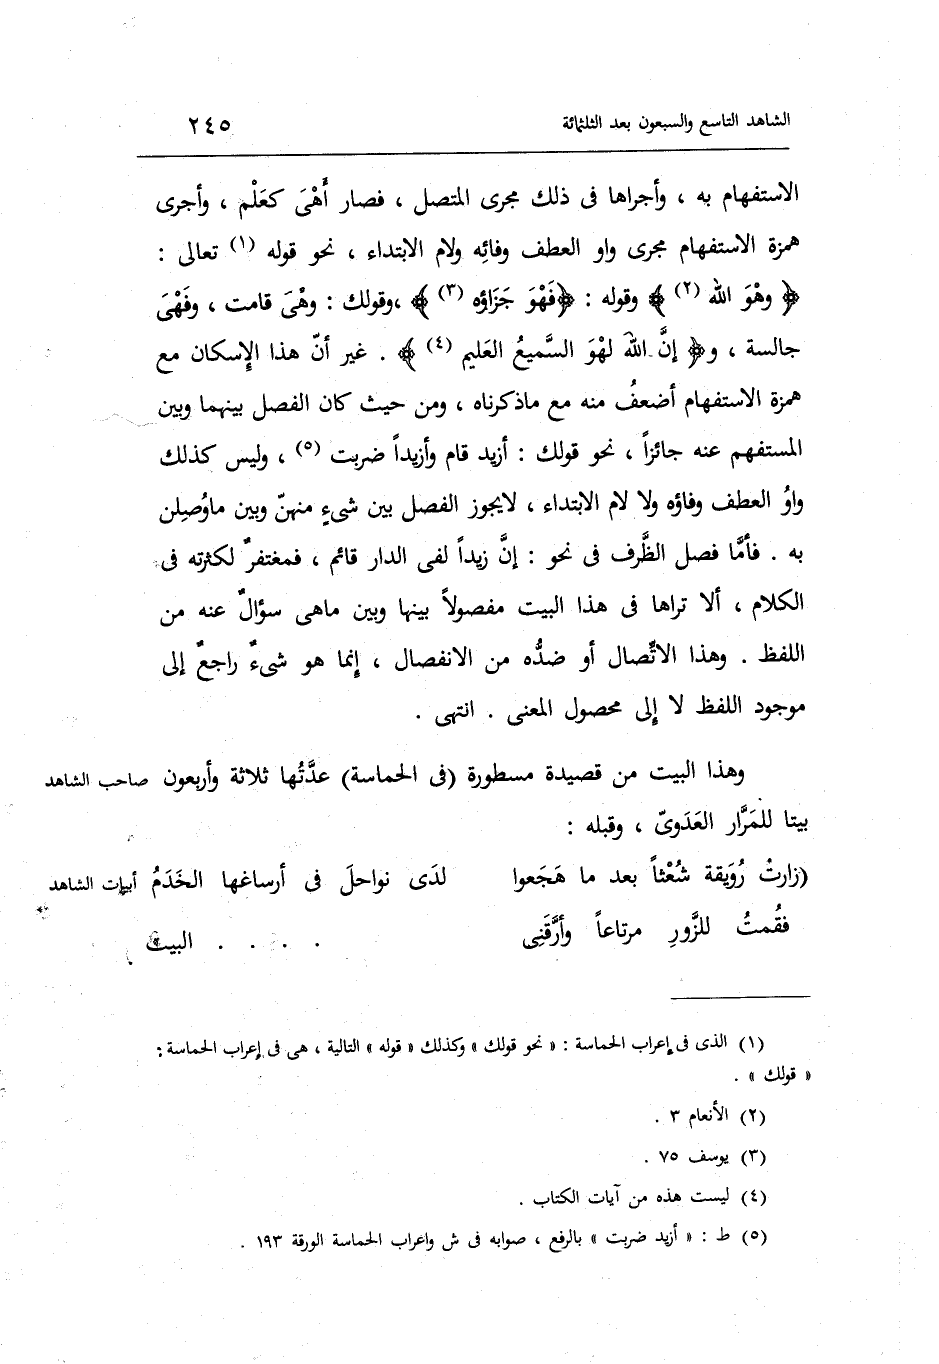 الشاهد التاسع والسبعون بعد الثلثمائة ٢٤٥
الاستفهام به ، وأجراها فى ذلك مجرى المتصل ، فصار أَهْيَ كعَلْم ، وأجرى
همزة الاستفهام مجرى واو العطف وفائِه ولام الابتداء ، نحو قوله (١) تعالى :
﴿ وهْوَ الله (٢) ﴾ وقوله : ﴿فَهْوَ جَزَاؤه (٣) ﴾ ،وقولك : وهْىَ قامت ، وفَهْىَ
جالسة ، و﴿ إنَّ اللهَ لهْوَ السَّميعُ العَليم (٤) ﴾ . غير أنّ هذا الإِسكان مع
همزة الاستفهام أضعفُ منه مع ماذكرناه ، ومن حيث كان الفصل بينهما وبين
المستفهم عنه جائزاً ، نحو قولك : أزيد قام وأزيداً ضربت (٥) ، وليس كذلك
واوُ العطف وفاؤه ولا لام الابتداء ، لايجوز الفصل بين شىءٍ منهنّ وبين ماوُصِلن
به . فأمَّا فصل الظَّرف فى نحو : إنَّ زيداً لفى الدار قائم ، فمغتفرٌ لكثرته فى
الكلام ، ألا تراها فى هذا البيت مفصولاً بينها وبين ماهى سؤالٌ عنه من
اللفظ . وهذا الاتِّصال أو ضدُّه من الانفصال ، إنما هو شىءٌ راجعٌ إلى
موجود اللفظ لا إلى محصول المعنى . انتهى .
وهذا البيت من قصيدة مسطورة (فى الحماسة) عدَّتُها ثلاثة وأربعون صاحب الشاهد
بيتا للمَرَّار العَدَوىّ ، وقبله :
(زارتْ رُوَيقة شُعْثاً بعد ما هَجَعوا لدَى نواحلَ فى أرساغها الخَدَمُ أبيات الشاهد
فقُمتُ للزَّورِ مرتاعاً وأرَّقَنِى . . . . البيت
(١) الذى فى إعراب الحماسة : « نحو قولك » وكذلك « قوله » التالية ، هى فى إعراب الحماسة :
« قولك » .
(٢) الأنعام ٣ .
(٣) يوسف ٧٥ .
(٤) ليست هذه من آيات الكتاب .
(٥) ط : « أزيد ضربت » بالرفع ، صوابه فى ش واعراب الحماسة الورقة ١٩٣ .